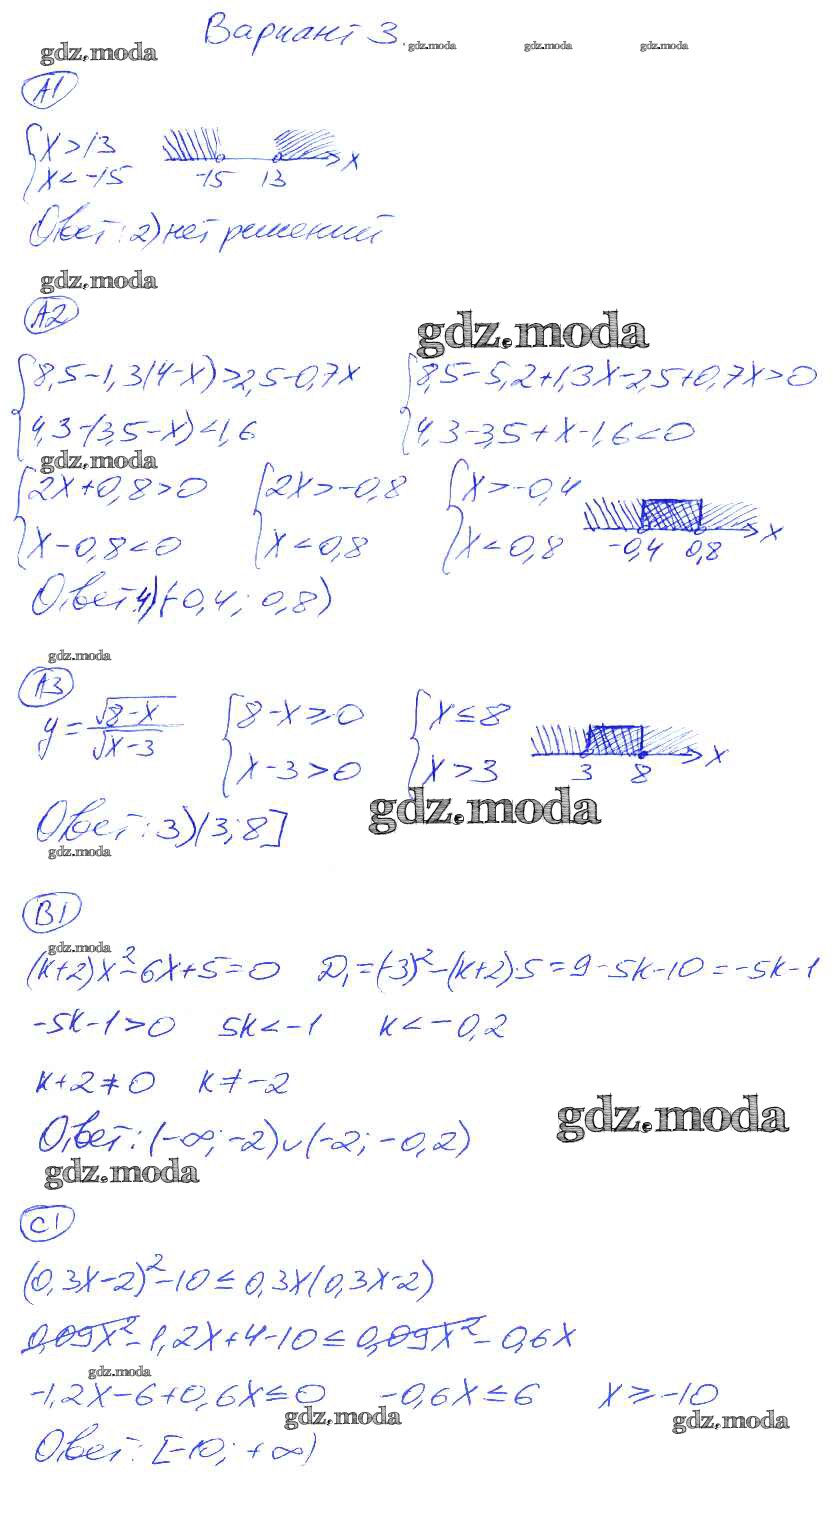 Вариант 3.
gdz.moda gdz.moda gdz.moda gdz.moda
А1
{ x > 13
x < -15
-15 13 x
Ответ: 2) нет решений
gdz.moda
А2
gdz.moda
{ 8,5-1,3(4-x)>2,5-0,7x { 8,5-5,2+1,3x-2,5+0,7x>0
4,3-(3,5-x)<1,6 4,3-3,5+x-1,6<0
gdz.moda
{ 2x+0,8>0 { 2x>-0,8 { x>-0,4
x-0,8<0 x<0,8 x<0,8 -0,4 0,8 x
Ответ: 4) (-0,4; 0,8)
gdz.moda
А3
y = √8-x / √x-3 { 8-x≥0 { x≤8
x-3>0 x>3 3 8 x
gdz.moda
Ответ: 3) (3; 8]
gdz.moda
В1
gdz.moda
(k+2)x²-6x+5=0 D₁=(-3)²-(k+2)·5=9-5k-10=-5k-1
-5k-1>0 5k<-1 k<-0,2
k+2≠0 k≠-2
gdz.moda
Ответ: (-∞; -2)∪(-2; -0,2)
gdz.moda
С1
(0,3x-2)²-10≤0,3x(0,3x-2)
0,09x²-1,2x+4-10≤0,09x²-0,6x
gdz.moda
-1,2x-6+0,6x≤0 -0,6x≤6 x≥-10
gdz.moda gdz.moda
Ответ: [-10; +∞)